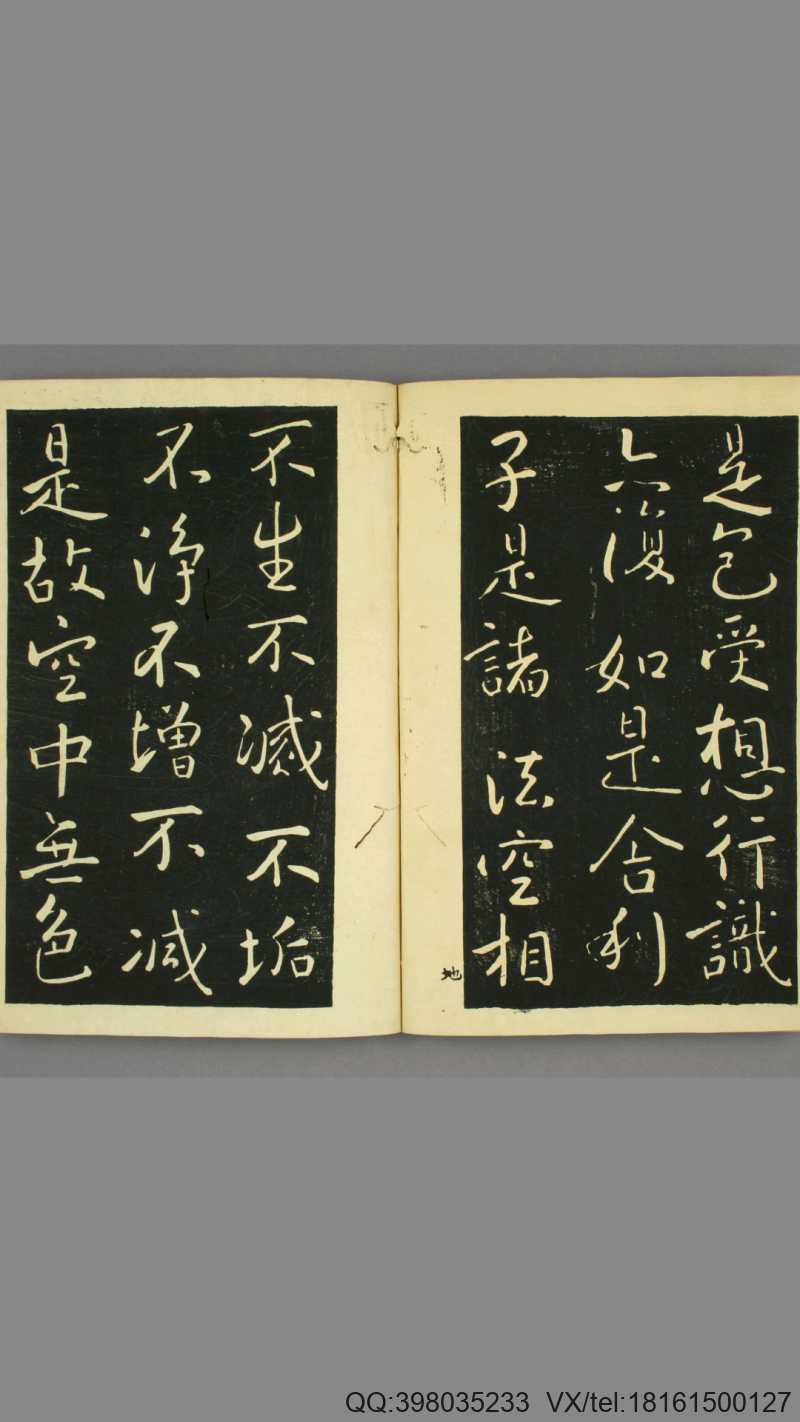 是色受想行識
亦復如是舍利
子是諸法空相
地
不生不滅不垢
不淨不增不減
是故空中無色
QQ:398035233 VX/tel:18161500127